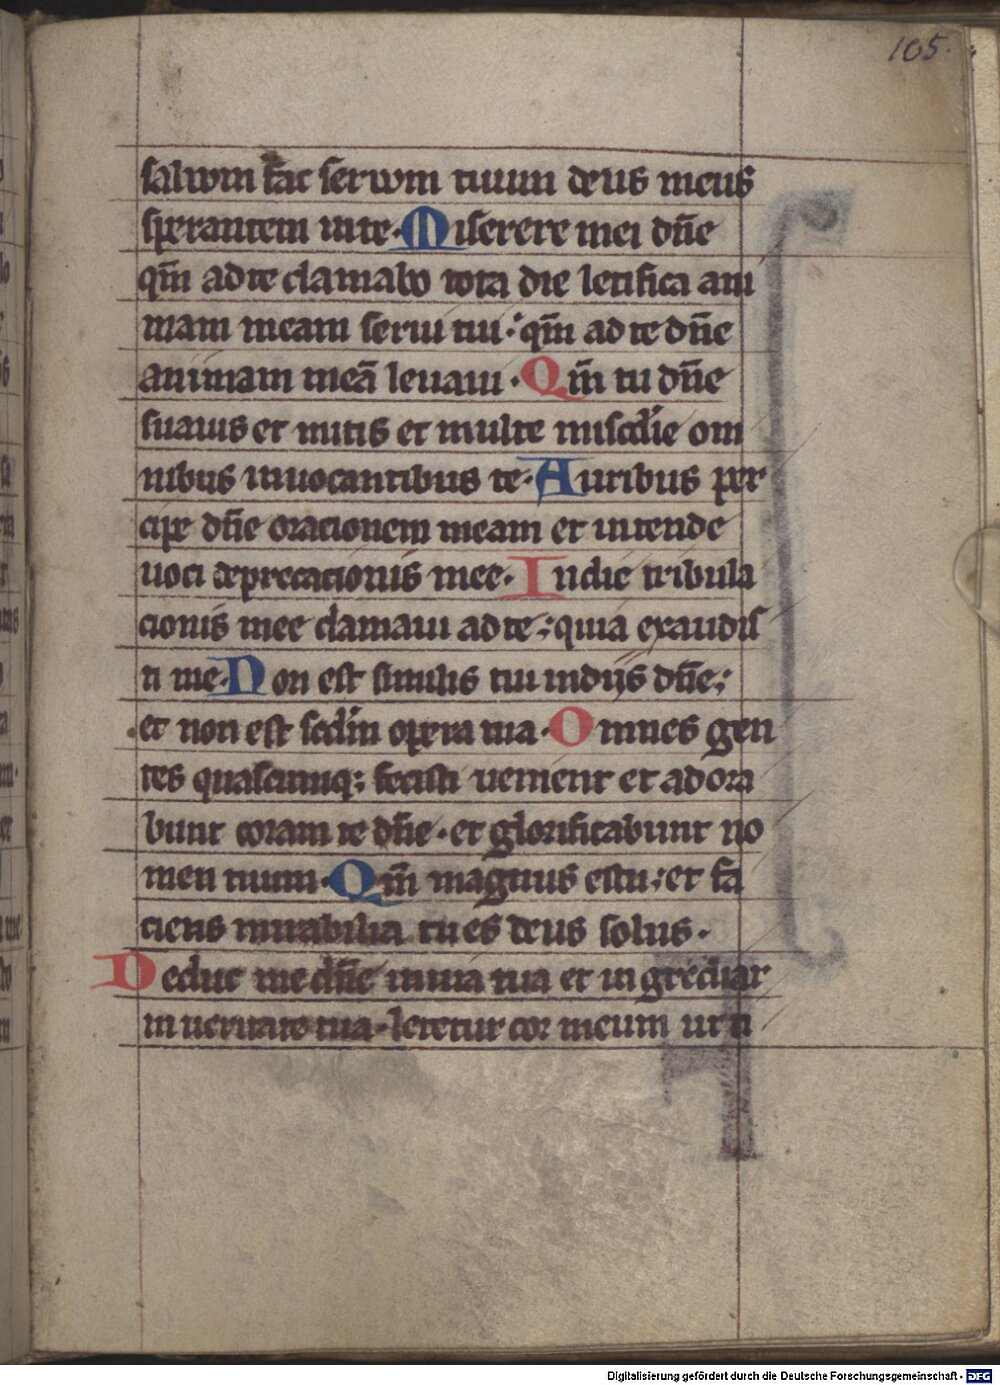 105.
saluum fac seruum tuum deus meus
sperantem in te. Miserere mei dn̄e
qm̄ ad te clamabo tota die letifica ani
mam meam serui tui: qm̄ ad te dn̄e
animam meā leuaui. Qm̄ tu dn̄e
suauis et mitis et multe mis̄cdie om
nibus inuocantibus te. Auribus per
cipe dn̄e oracionem meam et intende
uoci deprecacionis mee. In die tribula
cionis mee clamaui ad te; quia exaudis
ti me. Non est similis tui in dijs dn̄e;
et non est scd̄m opera tua. Omnes gen
tes quascumq; fecisti uenient et adora
bunt coram te dn̄e. et glorificabunt no
men tuum. Qm̄ magnus es tu; et fa
ciens mirabilia tu es deus solus.
Deduc me dn̄e in uia tua et in grediar
in ueritate tua. letetur cor meum ut ti
Digitalisierung gefördert durch die Deutsche Forschungsgemeinschaft - DFG